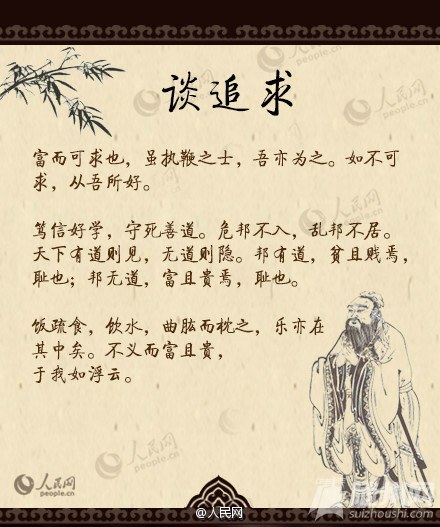 谈追求
富而可求也，虽执鞭之士，吾亦为之。如不可
求，从吾所好。
笃信好学，守死善道。危邦不入，乱邦不居。
天下有道则见，无道则隐。邦有道，贫且贱焉，
耻也；邦无道，富且贵焉，耻也。
饭疏食，饮水，曲肱而枕之，乐亦在
其中矣。不义而富且贵，
于我如浮云。
人民网
people.cn
人民网
people.cn
人民网
people.cn
人民网
people.cn
人民网
people.cn
@人民网
suizhoushi.com